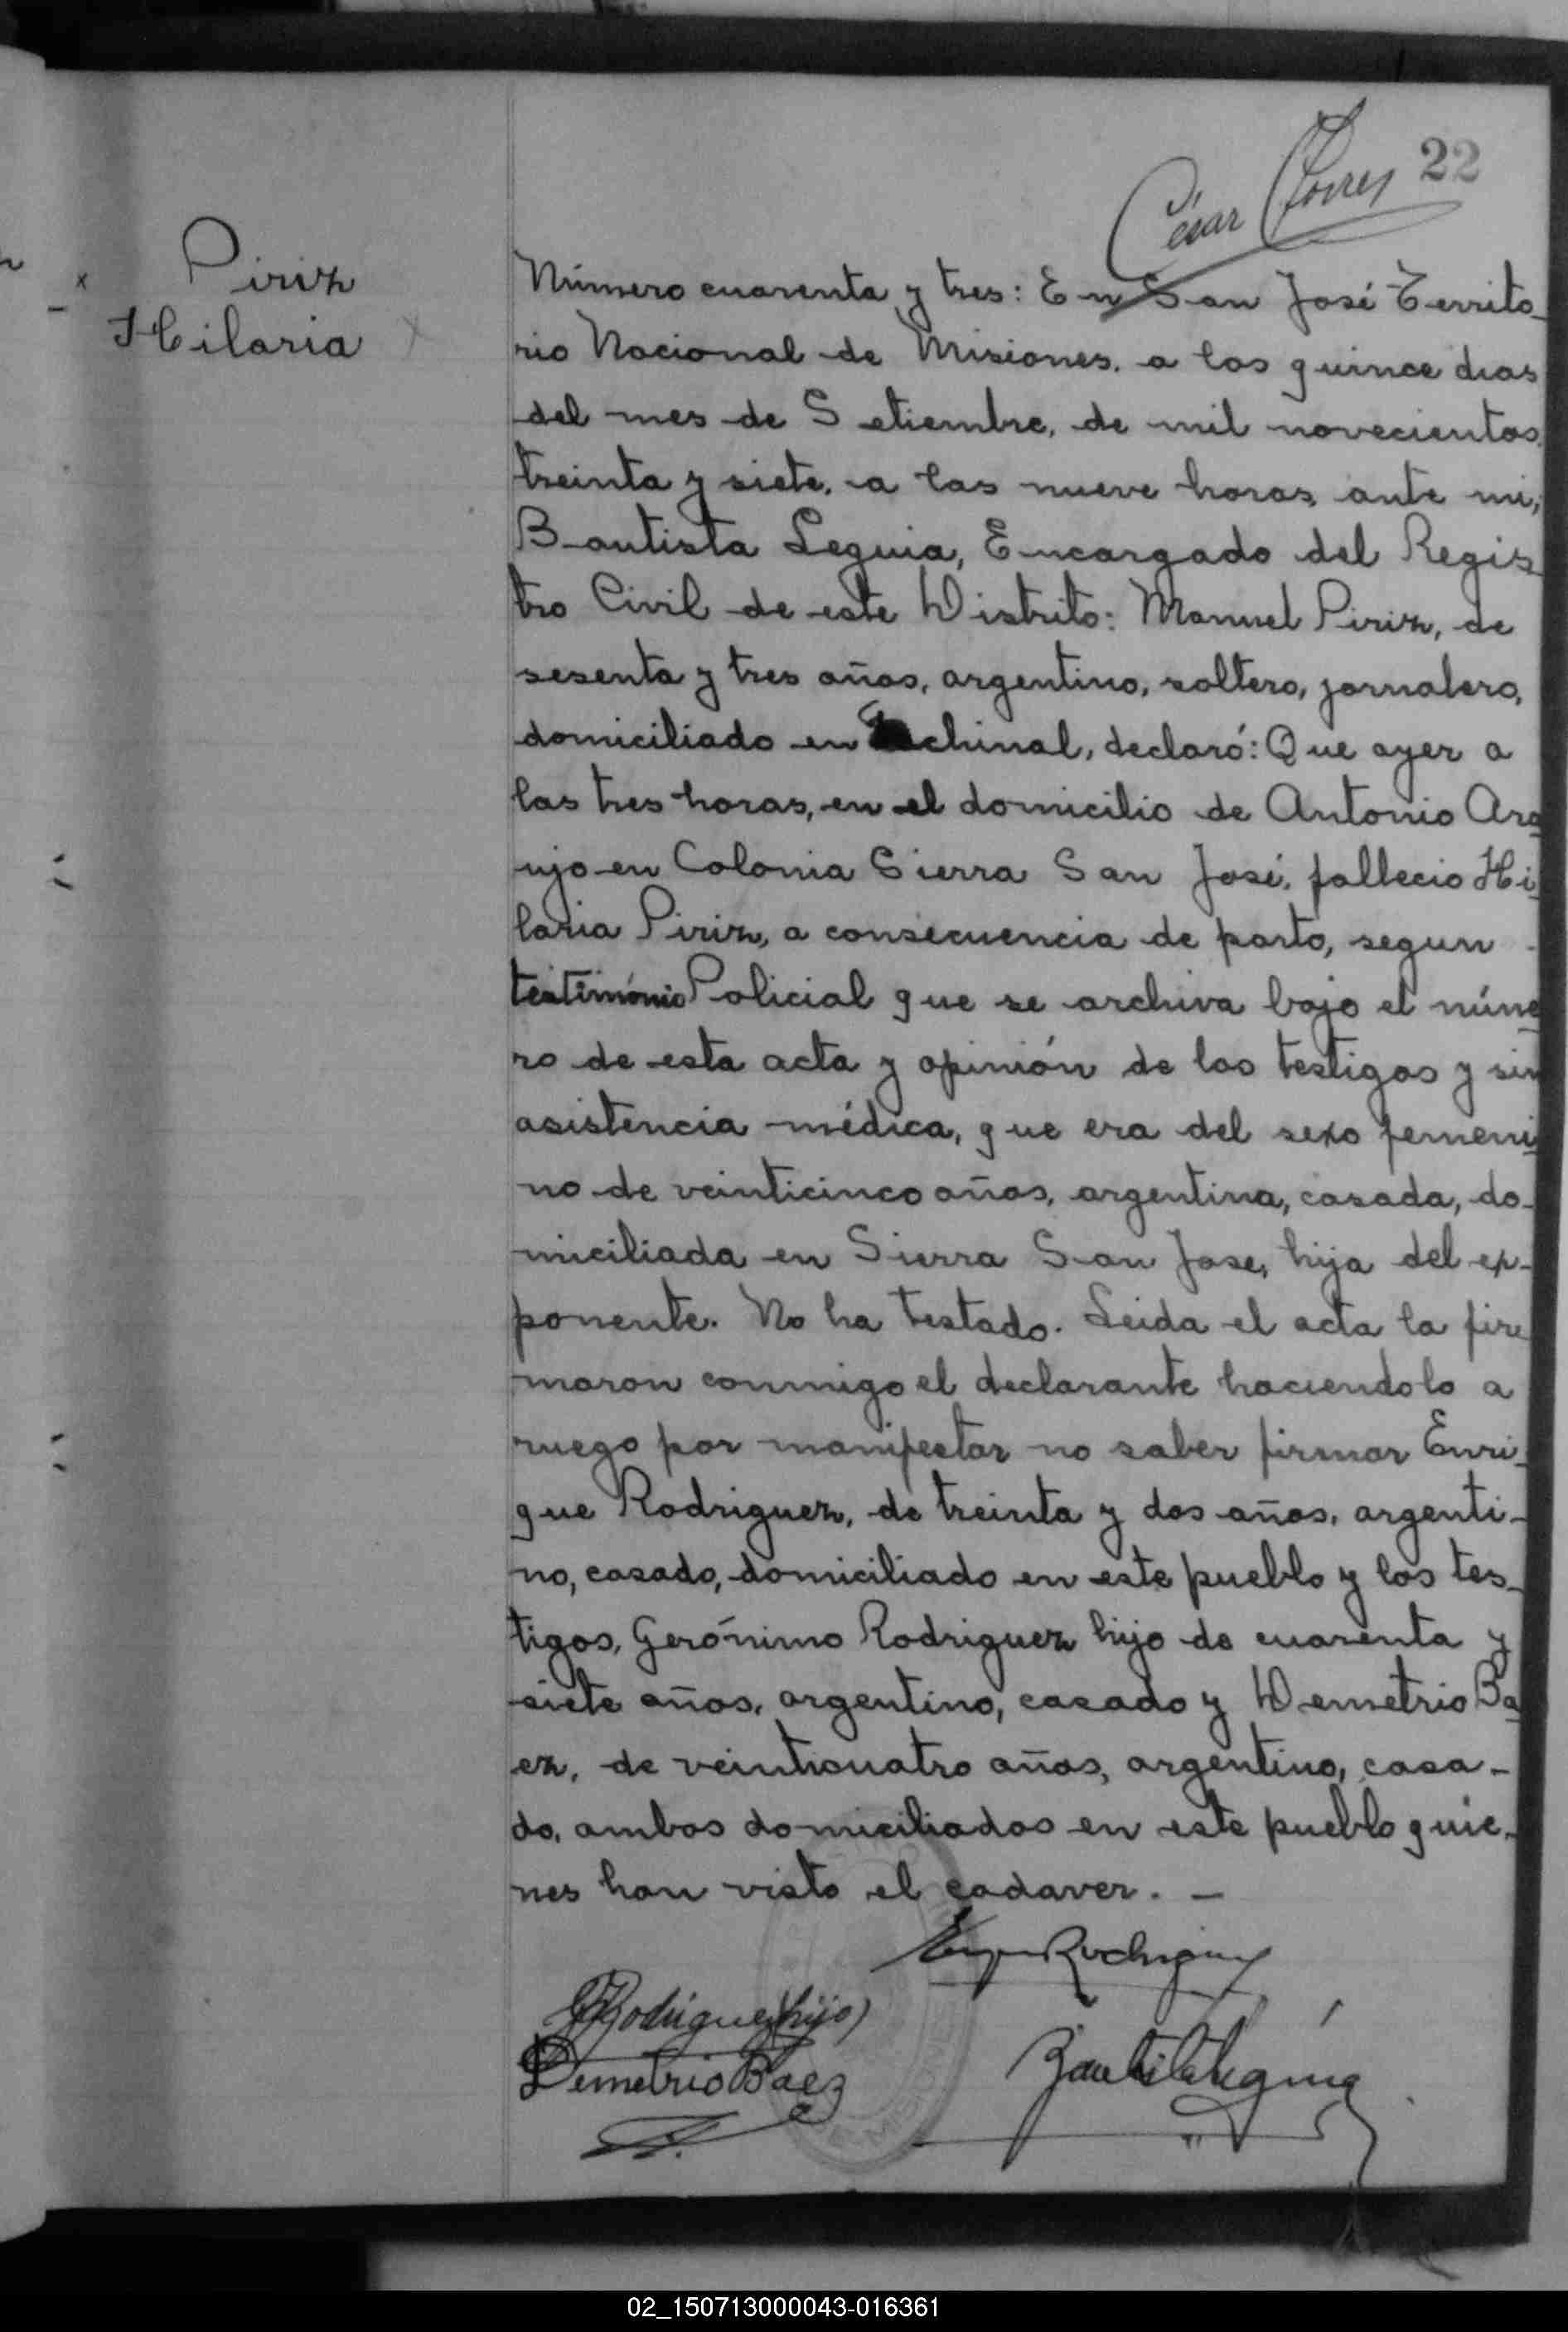 César Torres
22
Piriz
Hilaria
Número cuarenta y tres: En San José Territo-
rio Nacional de Misiones, a los quince dias
del mes de Setiembre, de mil novecientos
treinta y siete, a las nueve horas, ante mi,
Bautista Leguia, Encargado del Regis-
tro Civil de este Distrito: Manuel Piriz, de
sesenta y tres años, argentino, soltero, jornalero,
domiciliado en , declaró: Que ayer a
las tres horas, en el domicilio de Antonio Ara
ujo en Colonia Sierra San José, fallecio Hi
laria Piriz, a consecuencia de parto, segun
testimónio Policial que se archiva bajo el núme
ro de esta acta y opinión de los testigos y sin
asistencia médica, que era del sexo femeni
no de veinticinco años, argentina, casada, do-
miciliada en Sierra San Jose, hija del ex-
ponente. No ha testado. Leida el acta la fir
maron conmigo el declarante haciendolo a
ruego por manifestar no saber firmar Enri-
que Rodriguez, de treinta y dos años, argenti-
no, casado, domiciliado en este pueblo y los tes-
tigos, Gerónimo Rodriguez hijo de cuarenta y
siete años, argentino, casado y Demetrio Ba
ez, de veinticuatro años, argentino, casa-
do, ambos domiciliados en este pueblo quie-
nes han visto el cadaver. -
Rodriguez
GRodriguez (hijo)
Demetrio Baez
Bautista Leguia
02_150713000043-016361